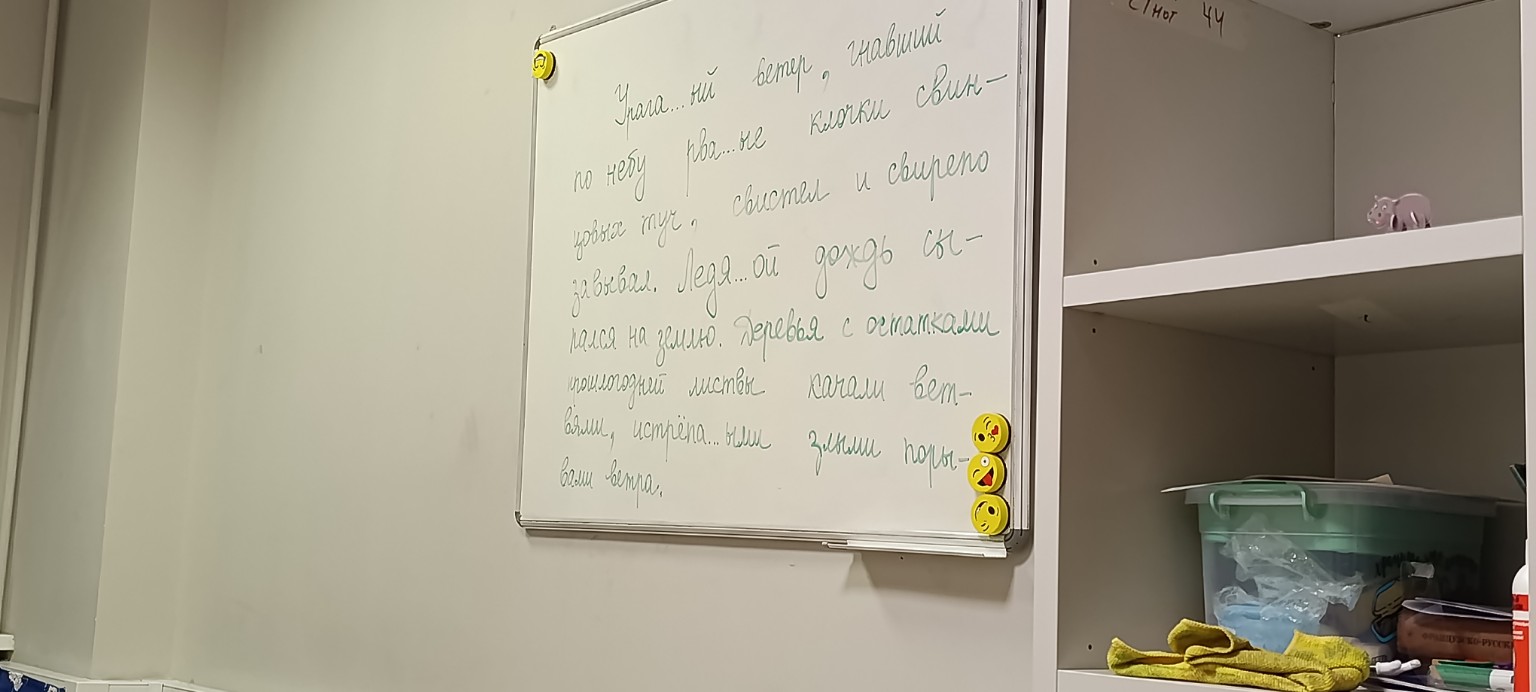 Урага...ый ветер, гнавший
по небу рва...ые клочки свин-
цовых туч, свистел и свирепо
завывал. Ледя...ой дождь сы-
пался на землю. Деревья с остатками
прошлогодней листвы качали вет-
вями, истрёпа...ыми злыми поры-
вами ветра.
44